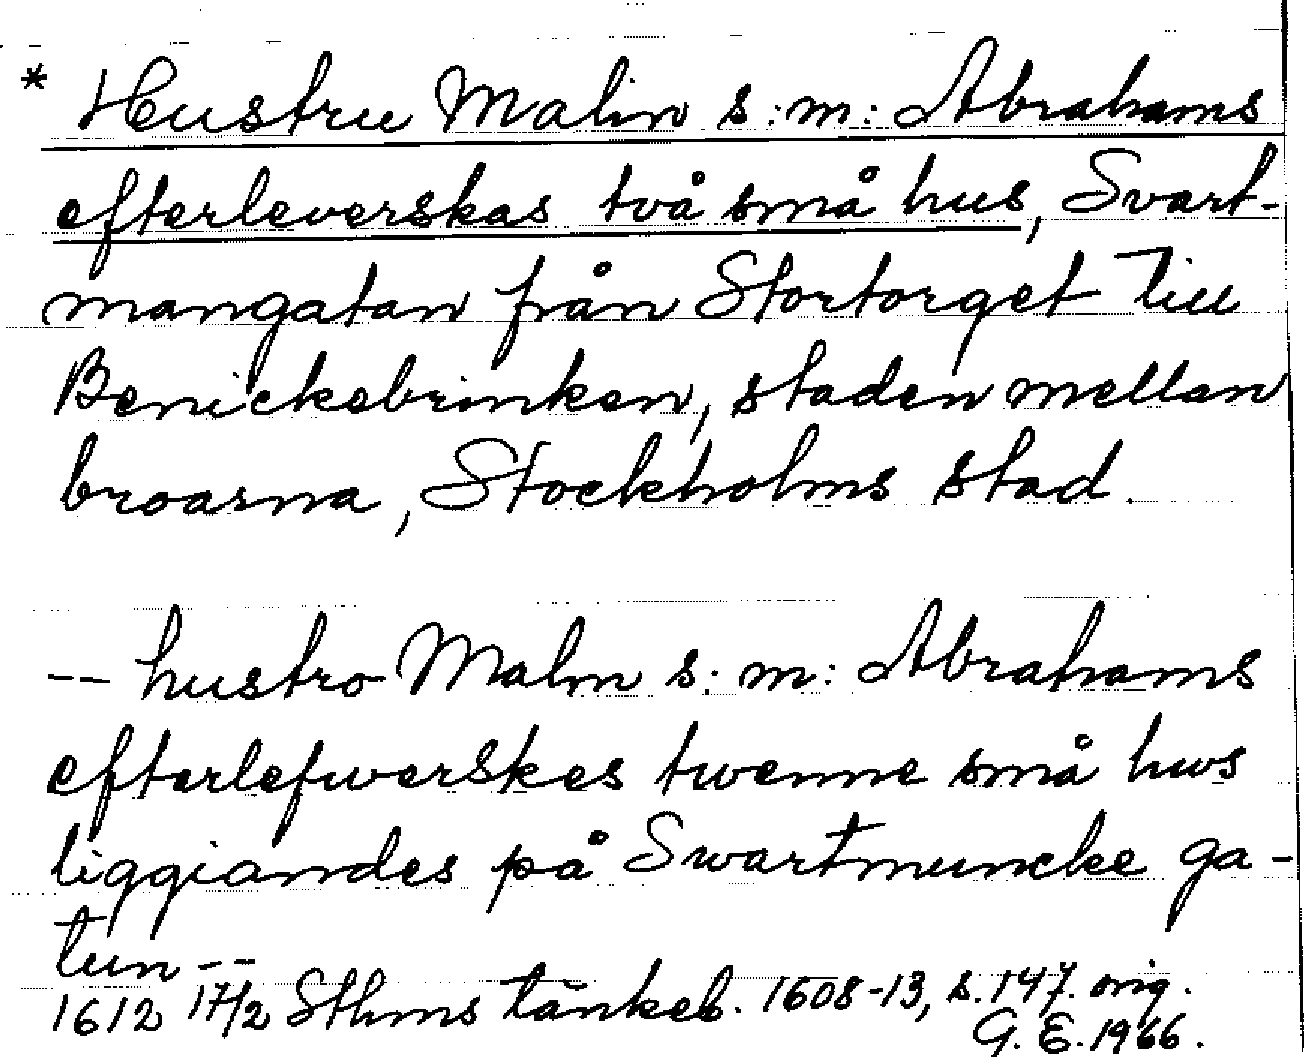 * Hustru Malin s:m: Abrahams
efterleverskas två små hus, Svart-
mangatan från Stortorget till
Benickebrinken, staden mellan
broarna, Stockholms stad.
-- hustro Malin s:m: Abrahams
efterlefwerskes twenne små hws
liggiandes på Swartmuncke ga-
tun --
1612 17/2 Sthms tänkeb. 1608-13, s. 147. orig.
G. E. 1966.